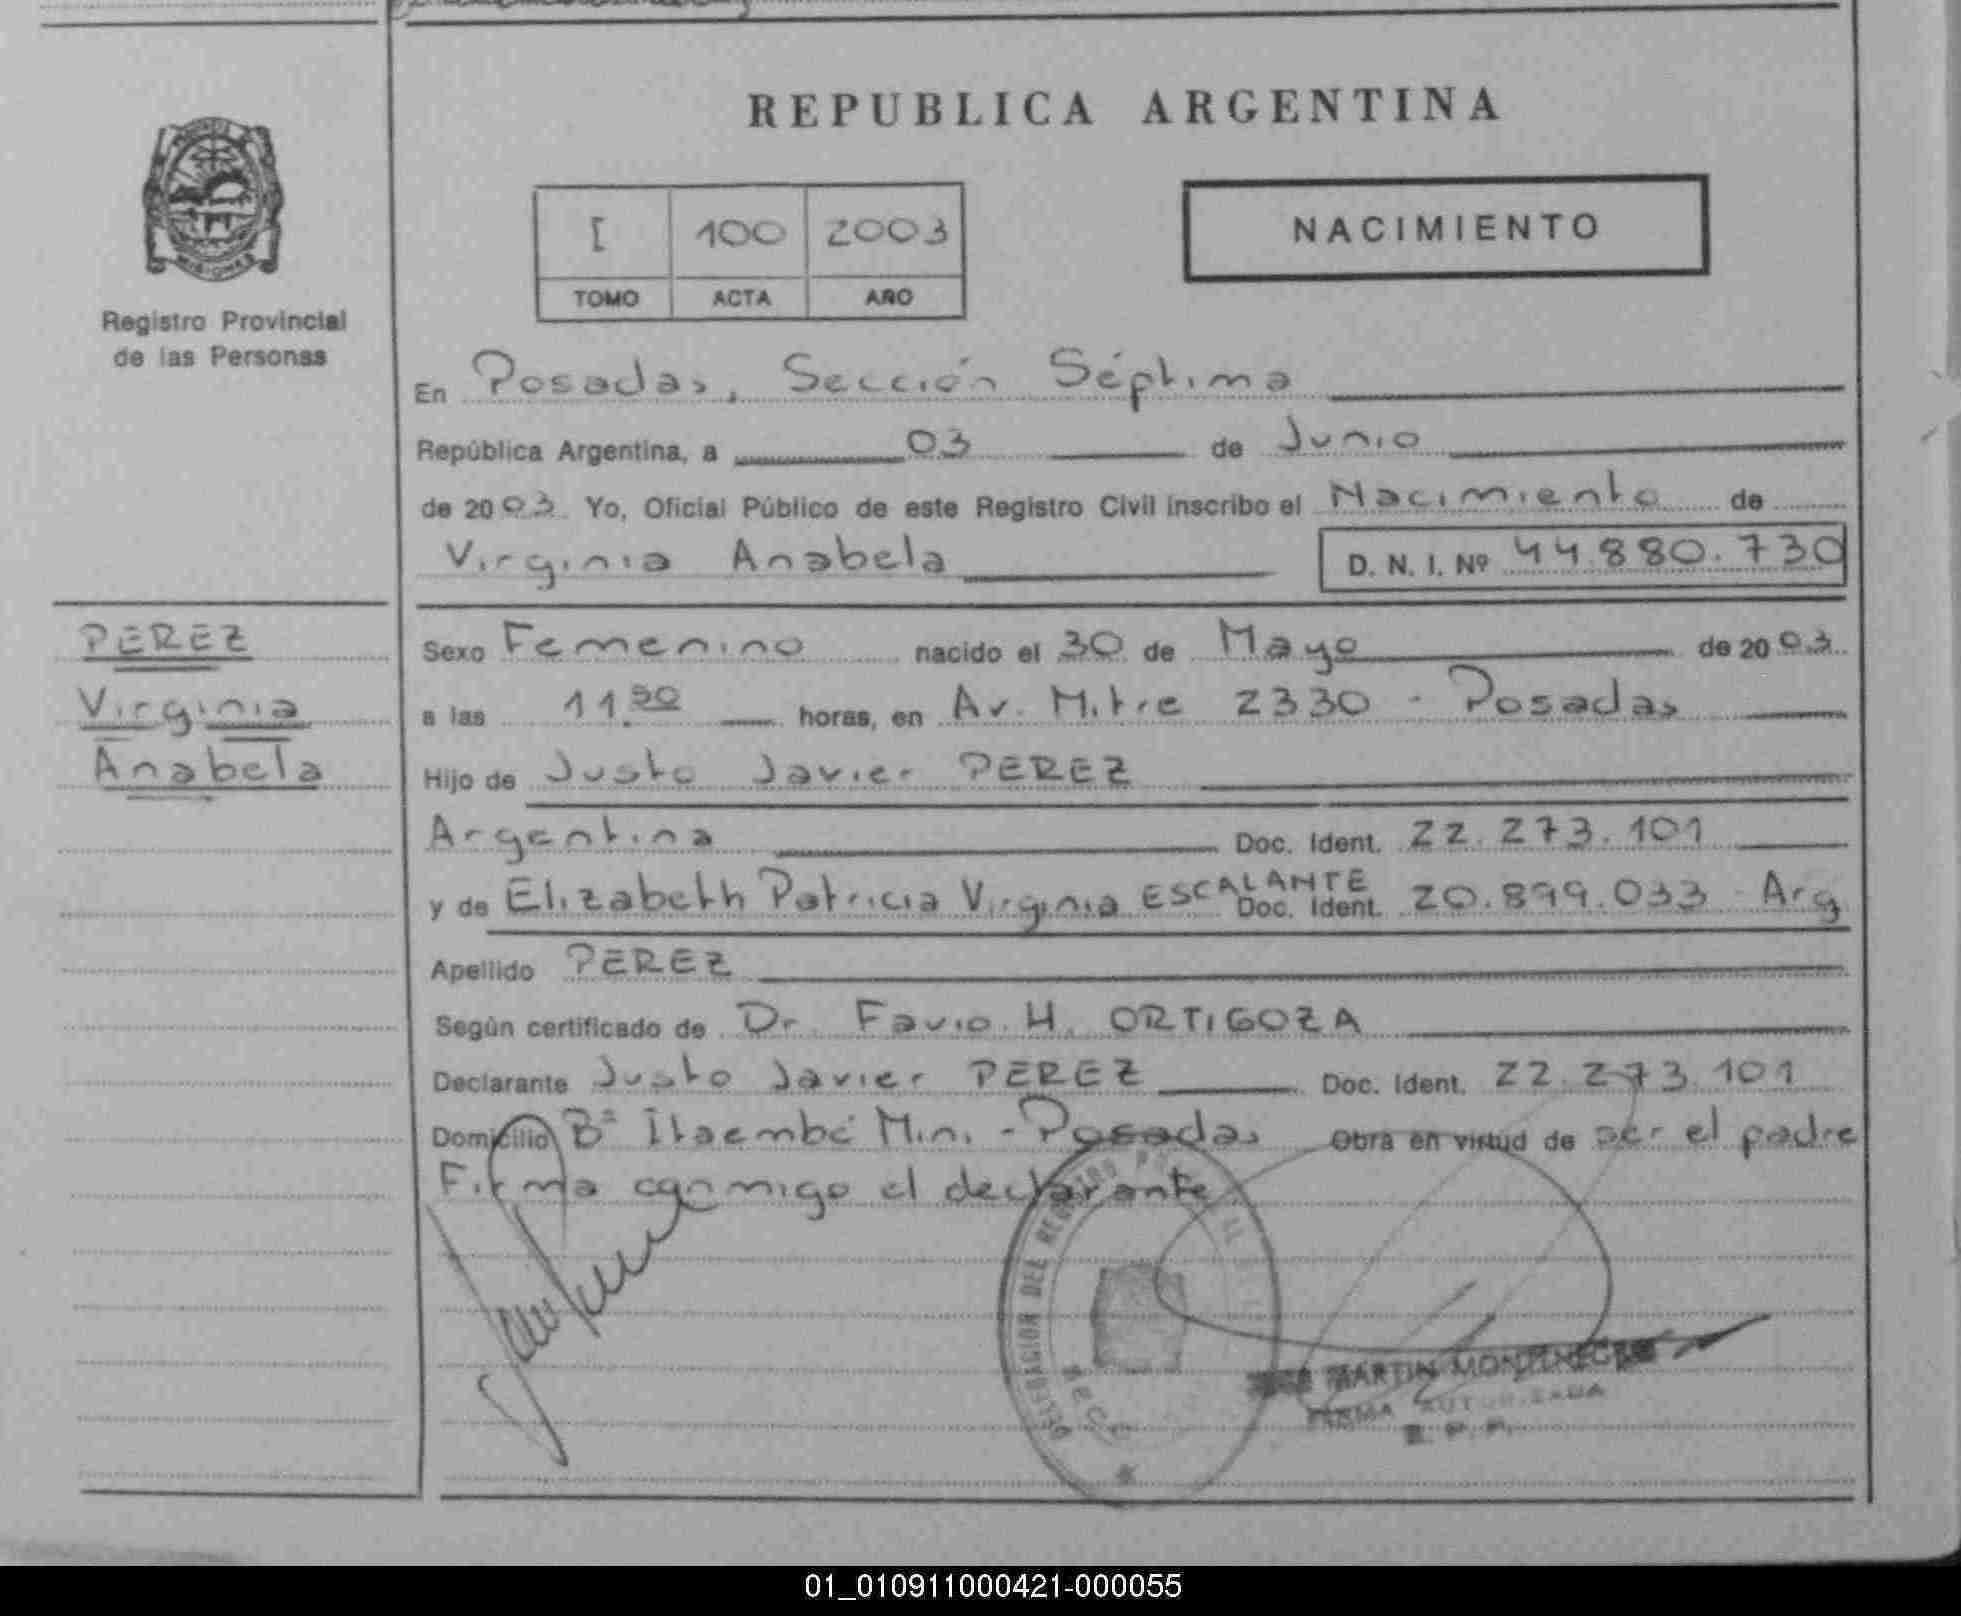 REPUBLICA ARGENTINA
I 100 2003
TOMO ACTA AÑO
NACIMIENTO
MISIONES
Registro Provincial
de las Personas
En Posadas, Sección Séptima
República Argentina, a 03 de Junio
de 2003 Yo, Oficial Público de este Registro Civil inscribo el Nacimiento de
Virginia Anabela D. N. I. Nº 44.880.730
PEREZ
Virginia
Anabela
Sexo Femenino nacido el 30 de Mayo de 2003
a las 11.30 horas, en Av. Mitre 2330 - Posadas
Hijo de Justo Javier PEREZ
Argentina Doc. Ident. 22.273.101
y de Elizabeth Patricia Virginia ESCALANTE Doc. Ident. 20.899.033 - Arg
Apellido PEREZ
Según certificado de Dr. Favio H. ORTIGOZA
Declarante Justo Javier PEREZ Doc. Ident. 22.273.101
Domicilio Bº Itaembé Mini - Posadas Obra en virtud de ser el padre
Firma conmigo el declarante
DELEGACION DEL REGISTRO
MARTIN MONTENEGRO
FIRMA AUTORIZADA
01_010911000421-000055